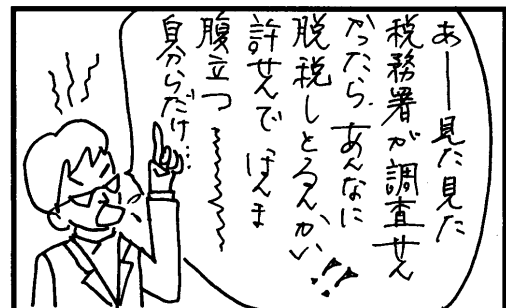 あー見た見た
税務署が調査せん
かったら、あんなに
脱税しとるんかい!!
許せんで ほんま
腹立つ〜〜〜
自分らだけ…